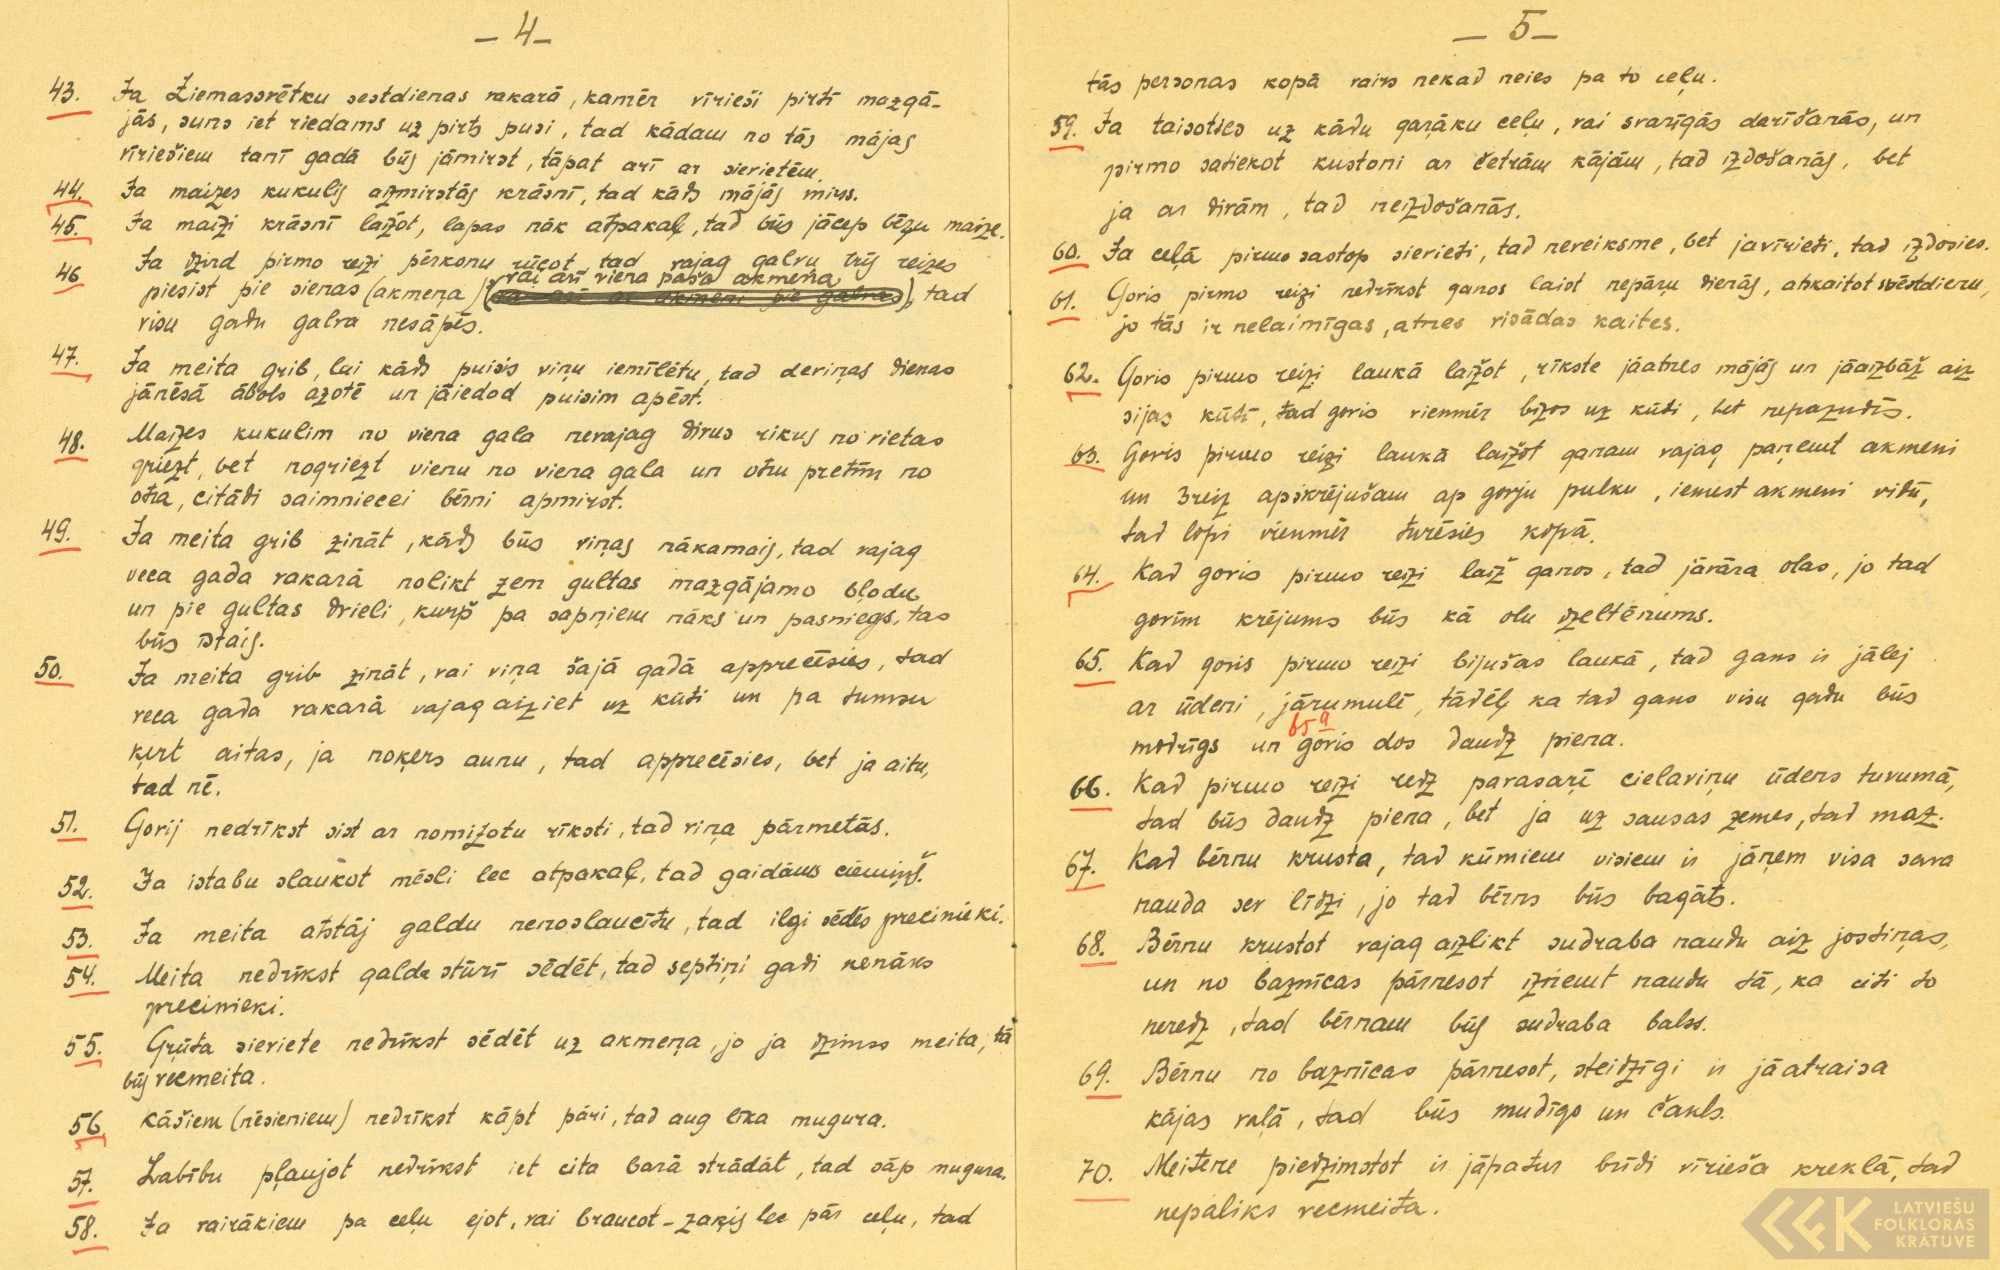 – 4 –
43. Ja Ziemassvētku sestdienas vakarā, kamēr vīrieši pirtī mazgā-
jās, suns iet riedams uz pirts pusi, tad kādam no tās mājas
vīriešiem tanī gadā būs jāmirst, tāpat arī ar sievietēm.
44. Ja maizes kukulis aizmirstās krāsnī, tad kāds mājās mirs.
45. Ja maizi krāsnī laižot, lapas nāk atpakaļ, tad būs jācep bēŗu maize.
46 Ja dzird pirmo reizi pērkonu rūcot, tad vajag galvu trīs reizes
vai arī viena paša akmeņa
piesist pie sienas (akmeņa) ( ), tad
visu gadu galva nesāpēs.
47. Ja meita grib, lai kāds puisis viņu iemīlētu, tad deviņas dienas
jānēsā ābols azotē un jāiedod puisim apēst.
48. Maizes kukulim no viena gala nevajag divus rikus no vietas
griezt, bet nogriezt vienu no viena gala un otru pretīm no
otra, citādi saimniecei bērni apmirst.
49. Ja meita grib zināt, kāds būs viņas nākamais, tad vajag
veca gada vakarā nolikt zem gultas mazgājamo bļodu
un pie gultas dvieli, kurš pa sapņiem nāks un pasniegs, tas
būs īstais.
50. Ja meita grib zināt, vai viņa šajā gadā apprecēsies, tad
veca gada vakarā vajag aiziet uz kūti un pa tumsu
ķert aitas, ja noķers aunu, tad apprecēsies, bet ja aitu,
tad nē.
51. Govij nedrīkst sist ar nomizotu rīksti, tad viņa pārmetās.
52. Ja istabu slaukot mēsli lec atpakaļ, tad gaidāms ciemiņš.
53. Ja meita atstāj galdu nenoslaucītu, tad ilgi sēdēs precinieki.
54. Meita nedrīkst galda stūrī sēdēt, tad septiņi gadi nenāks
precinieki.
55. Grūta sieviete nedrīkst sēdēt uz akmeņa, jo ja dzims meita, tā
būs vecmeita.
56. Kāšiem (nēsieniem) nedrīkst kāpt pāri, tad aug līka mugura.
57. Labību pļaujot nedrīkst iet cita barā strādāt, tad sāp mugura.
58. Ja vairākiem pa ceļu ejot, vai braucot – zaķis lec pār ceļu, tad
– 5 –
tās personas kopā vairs nekad neies pa to ceļu.
59. Ja taisoties uz kādu garāku ceļu, vai svarīgās darīšanās, un
pirmo satiekot kustoni ar četrām kājām, tad izdošanās, bet
ja ar divām, tad neizdošanās.
60. Ja ceļā pirmo sastop sievieti, tad neveiksme, bet ja vīrieti, tad izdosies.
61. Govis pirmo reizi nedrīkst ganos laist nepāŗu dienās, atskaitot svētdienu,
jo tās ir nelaimīgas, atnes visādas kaites.
62. Govis pirmo reizi laukā laižot, rīkste jāatnes mājās un jāaizbāž aiz
sijas kūtī, tad govis vienmēr bizos uz kūti, bet nepazudīs.
63. Govis pirmo reizi laukā laižot ganam vajag paņemt akmeni
un 3reiz apskrējušam ap govju pulku, iemest akmeni vidū,
tad lopi vienmēr turēsies kopā.
64. Kad govis pirmo reizi laiž ganos, tad jāvāra olas, jo tad
govīm krējums būs kā olu dzeltēnums.
65. Kad govis pirmo reizi bijušas laukā, tad gans ir jālej
ar ūdeni, jārumulē, tādēļ ka tad gans visu gadu būs
65a
modrīgs un govis dos daudz piena.
66. Kad pirmo reizi redz pavasarī cielaviņu ūdens tuvumā,
tad būs daudz piena, bet ja uz sausas zemes, tad maz.
67. Kad bērnu krusta, tad kūmiem visiem ir jāņem visa sava
nauda sev līdzi, jo tad bērns būs bagāts.
68. Bērnu krustot vajag aizlikt sudraba naudu aiz jostiņas,
un no baznīcas pārnesot izņemt naudu tā, ka citi to
neredz, tad bērnam būs sudraba balss.
69. Bērnu no baznīcas pārnesot, steidzīgi ir jāatraisa
kājas vaļā, tad būs mudīgs un čakls.
70. Meitene piedzimstot ir jāpatur brīdi vīrieša kreklā, tad
nepaliks vecmeita.
LATVIEŠU
FOLKLORAS
KRĀTUVE